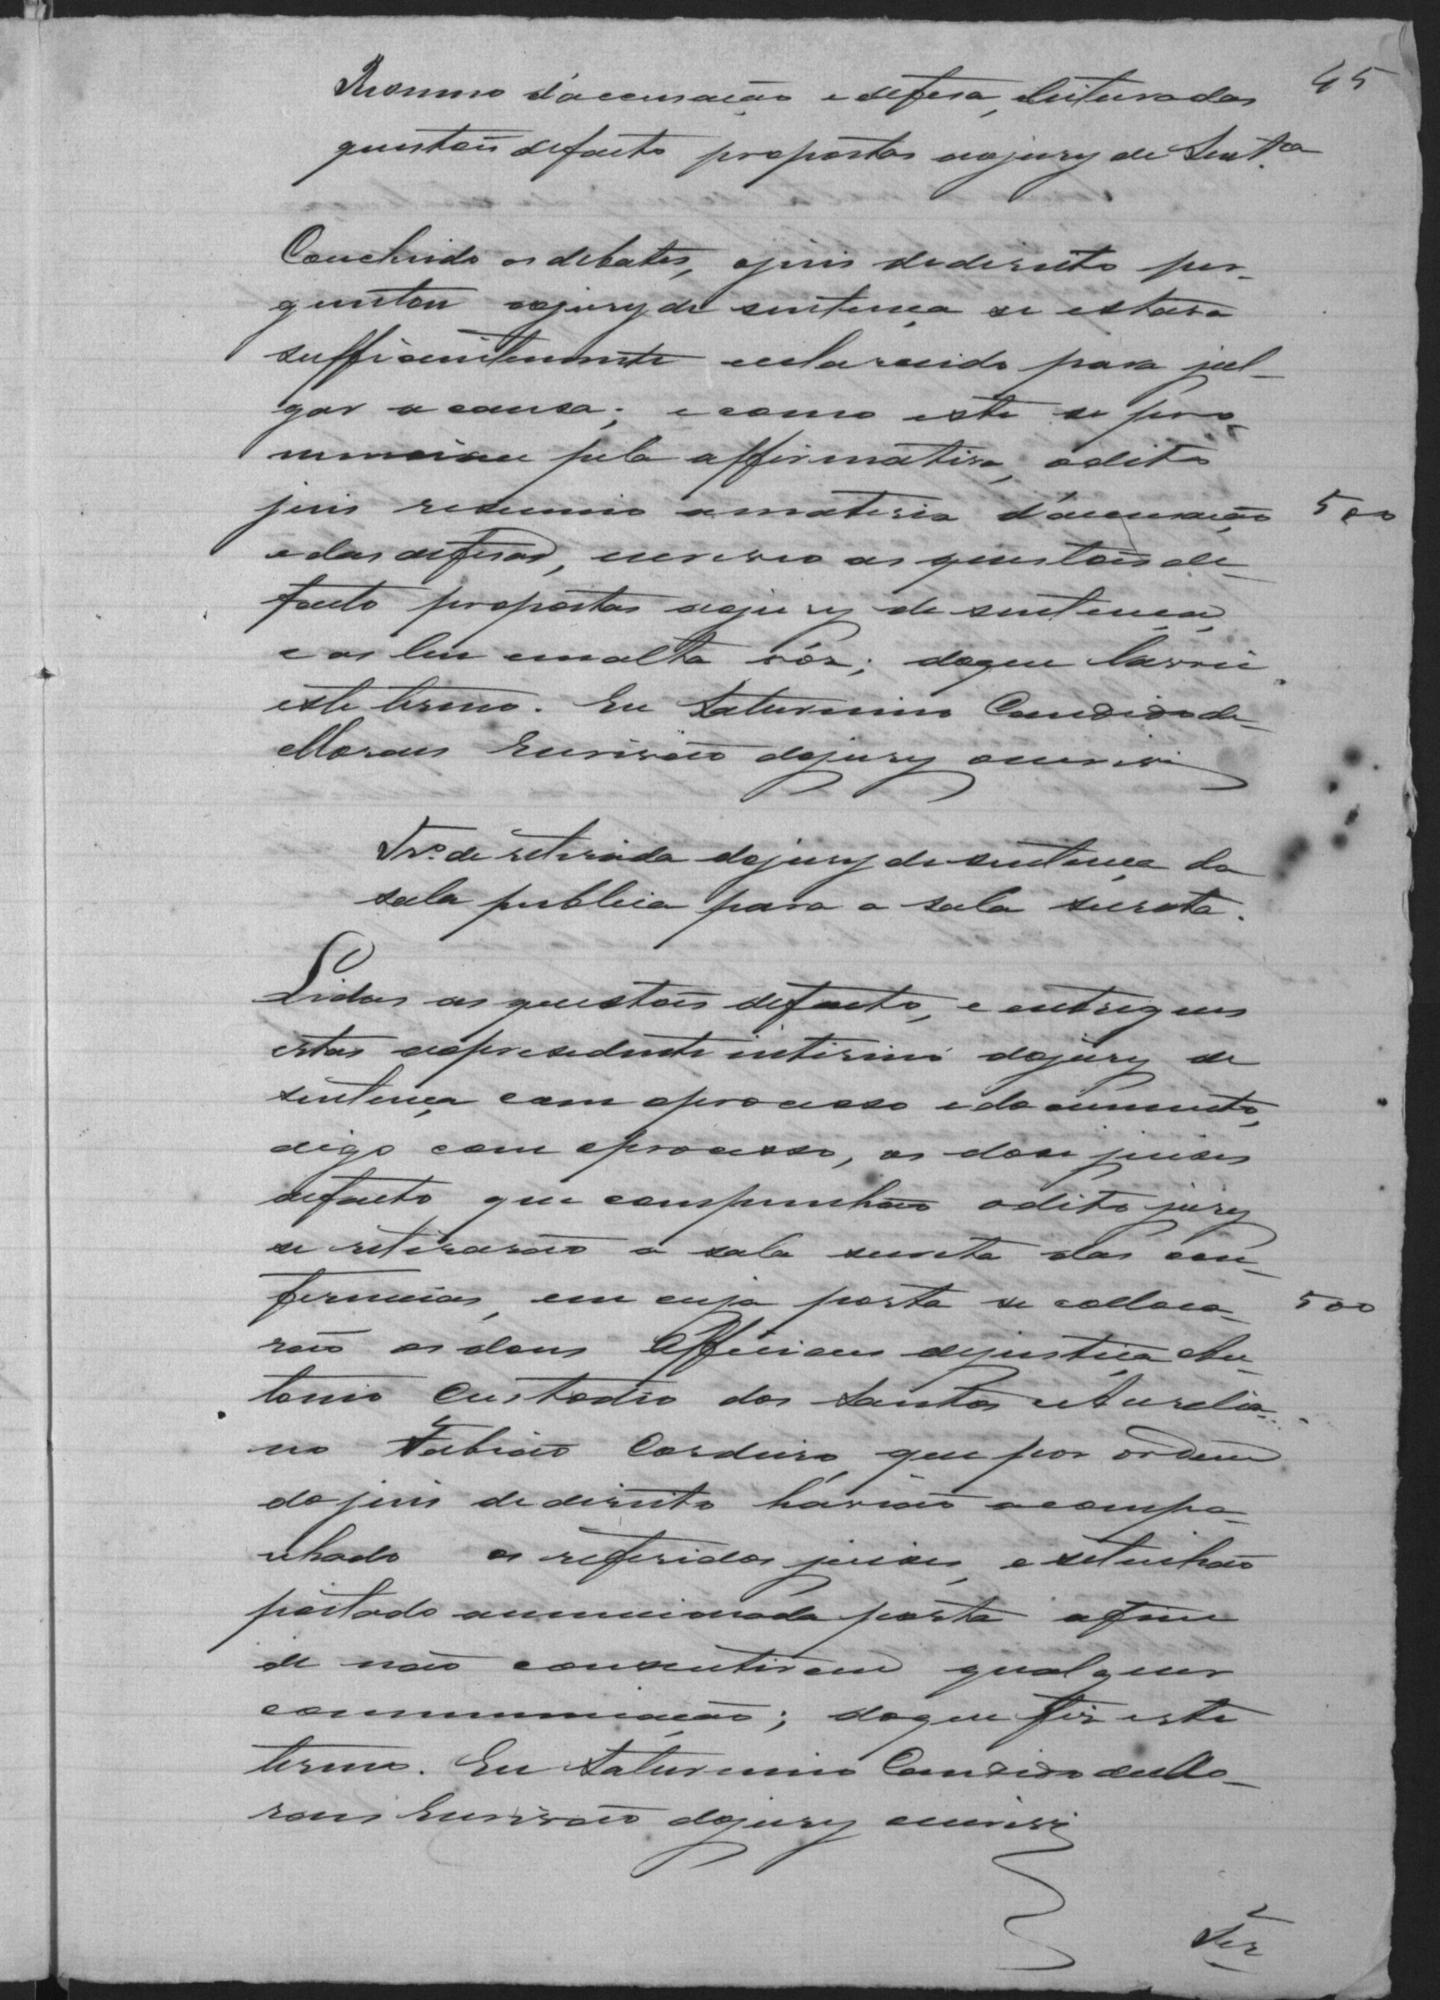 45
Resumo d'accusação e defesa, leitura das
questões defacto propostas aojury de Sent.ça
Concluido os debates, ojuis dedireito per-
guntou aojury de sentença se estava
sufficientemente esclarecido para jul-
gar a causa; ecomo este se pro-
nunciou pela affirmativa, odito
juis resumio amateria d'accusação 500
e das defesas, escreveo as questões de
facto propostas aojury de sentença,
e as leu emalta vós; doque lavrei
este termo. Eu Saturnino Candido de
Moraes Escrivão dojury escrevi
Tr.º de retirada dojury de sentença da
sala publica para a sala secreta.
Lidas as questões defacto, e entregues
estas aopresidente interino dojury de
sentença com oprocesso e documento,
digo com oprocesso, os dose juises
defacto que compunhão odito jury
se retirarão a sala secreta das con-
ferencias, em cuja porta se colloca- 500
rão os dous Officiaes dejustiça An-
tonio Custodio dos Santos e Aurelia-
no Fabião Cordeiro, que por ordem
do juis de direito havião acompa-
nhado os referidos juises, e setinhão
postado amencionada porta afim
de não consentirem qualquer
communicação; doque fis este
termo. Eu Saturnino Candido de Mo-
raes Escrivão dojury escrevi
Ter